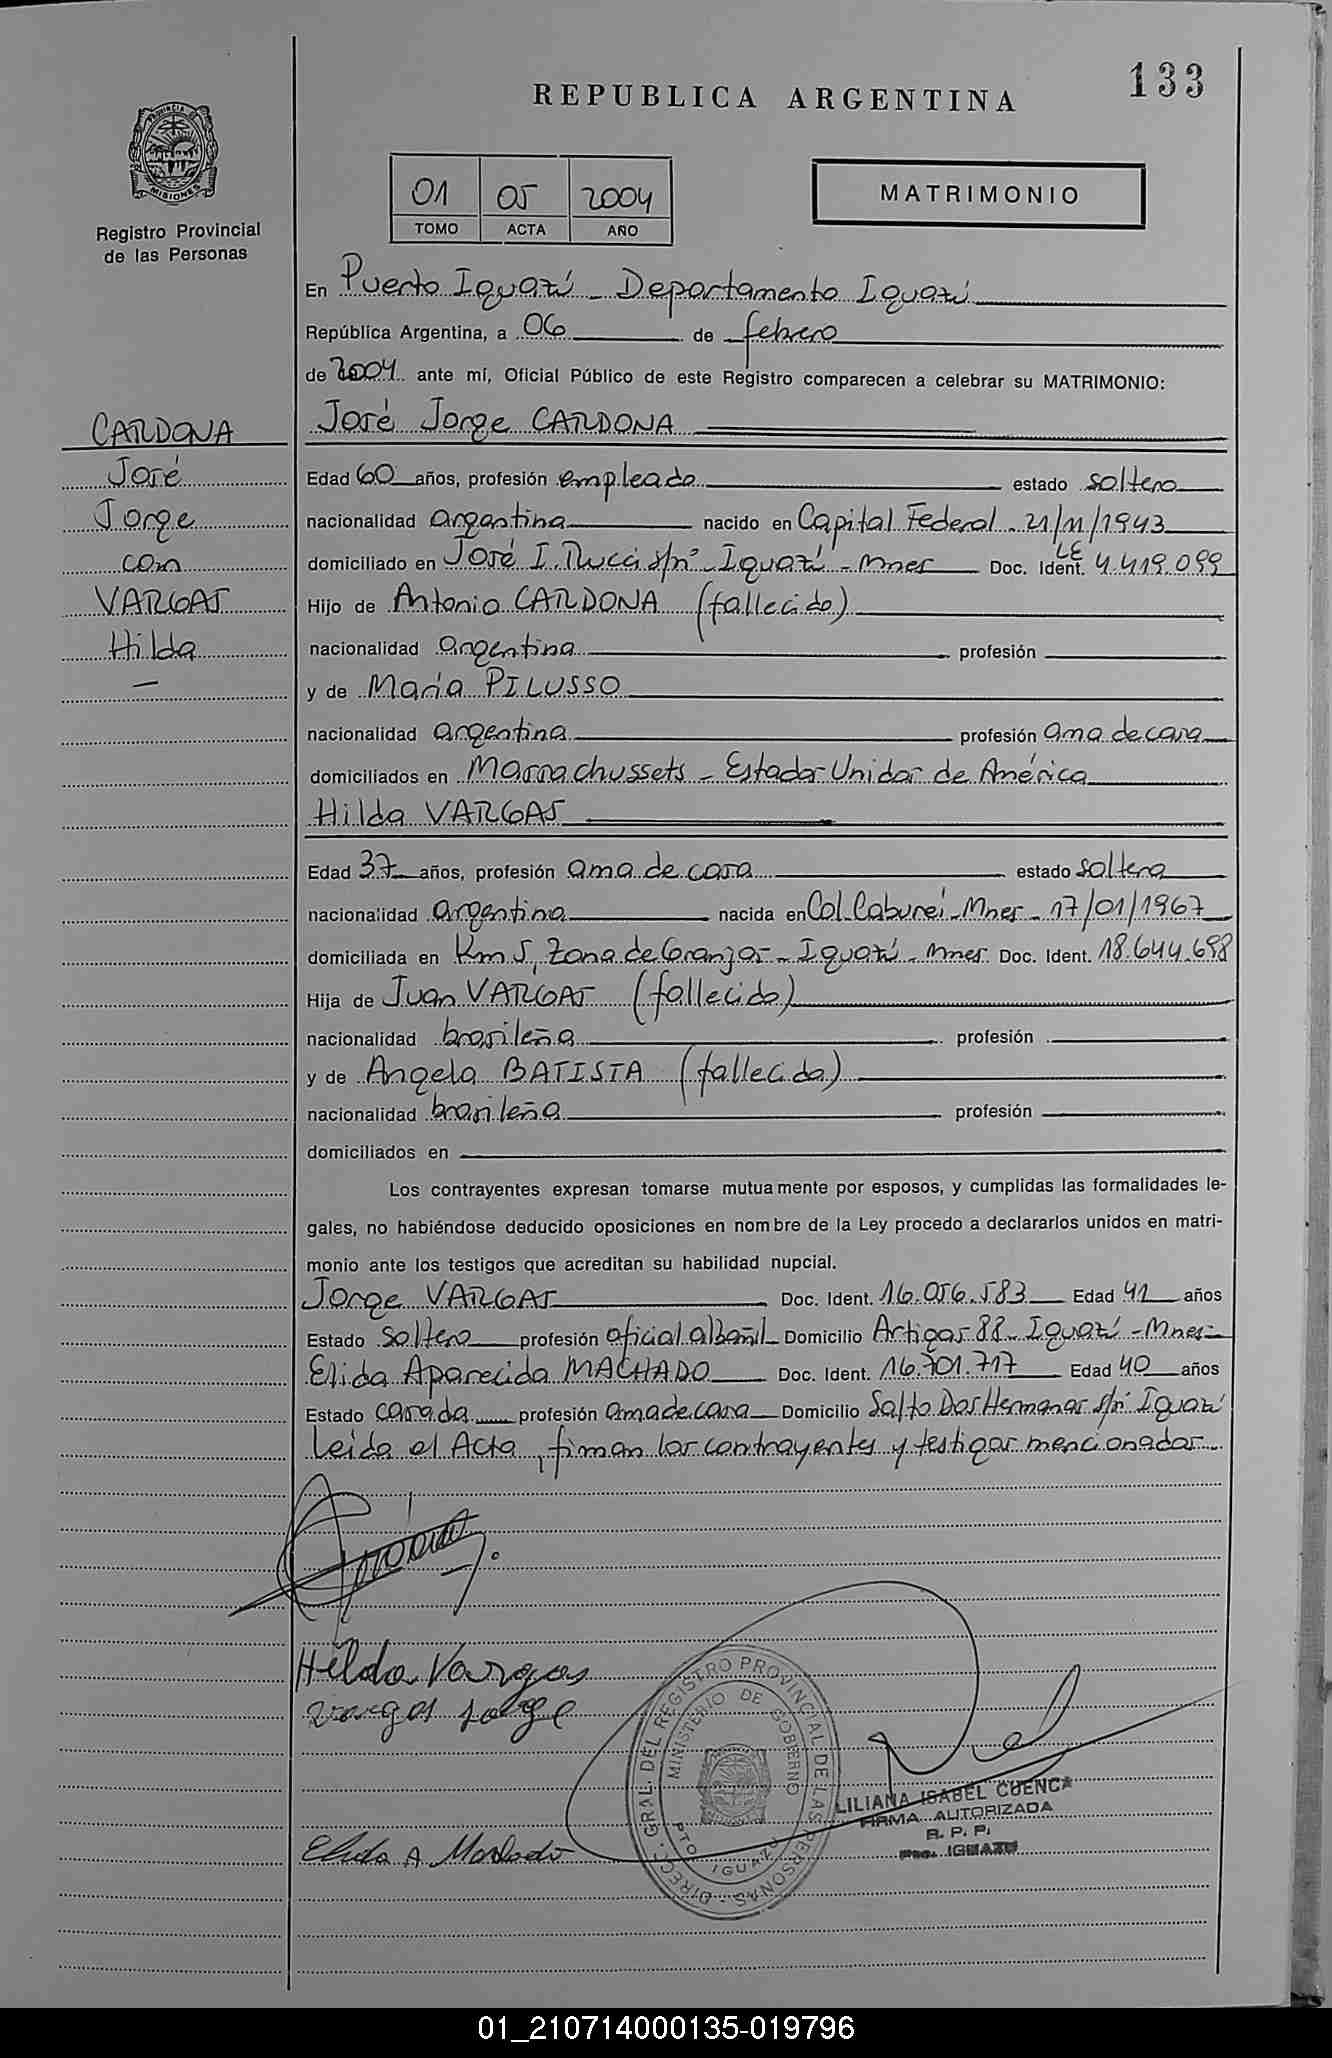 133
REPUBLICA ARGENTINA
PROVINCIA DE MISIONES
Registro Provincial
de las Personas
01 05 2004
TOMO ACTA AÑO
MATRIMONIO
En Puerto Iguazú - Departamento Iguazú
República Argentina, a 06 de febrero
de 2004 ante mí, Oficial Público de este Registro comparecen a celebrar su MATRIMONIO:
CARDONA
José
Jorge
con
VARGAS
Hilda
—
José Jorge CARDONA
Edad 60 años, profesión empleado estado soltero
nacionalidad argentina nacido en Capital Federal - 21/11/1943
domiciliado en José I. Rucci s/nº - Iguazú - Mnes Doc. Ident. LE 4.419.099
Hijo de Antonio CARDONA (fallecido)
nacionalidad argentina profesión
y de María PILUSSO
nacionalidad argentina profesión ama de casa
domiciliados en Massachussets - Estados Unidos de América
Hilda VARGAS
Edad 37 años, profesión ama de casa estado soltera
nacionalidad argentina nacida en Col. Caburei - Mnes - 17/01/1967
domiciliada en Km 5, Zona de Granjas - Iguazú - Mnes Doc. Ident. 18.644.698
Hija de Juan VARGAS (fallecido)
nacionalidad brasileña profesión
y de Angela BATISTA (fallecida)
nacionalidad brasileña profesión
domiciliados en
Los contrayentes expresan tomarse mutuamente por esposos, y cumplidas las formalidades le-
gales, no habiéndose deducido oposiciones en nombre de la Ley procedo a declararlos unidos en matri-
monio ante los testigos que acreditan su habilidad nupcial.
Jorge VARGAS Doc. Ident. 16.056.583 Edad 41 años
Estado soltero profesión oficial albañil Domicilio Artigas 88 - Iguazú - Mnes
Elida Aparecida MACHADO Doc. Ident. 16.701.717 Edad 40 años
Estado casada profesión ama de casa Domicilio Salto Dos Hermanas s/nº Iguazú
Leída el Acta, firman los contrayentes y testigos mencionados
Hilda Vargas
Vargas Jorge
Elida A Machado
DIRECC. GRAL. DEL REGISTRO PROVINCIAL DE LAS PERSONAS
MINISTERIO DE GOBIERNO
PTO IGUAZU
LILIANA ISABEL CUENCA
FIRMA AUTORIZADA
R. P. P.
Pto. IGUAZU
01_210714000135-019796